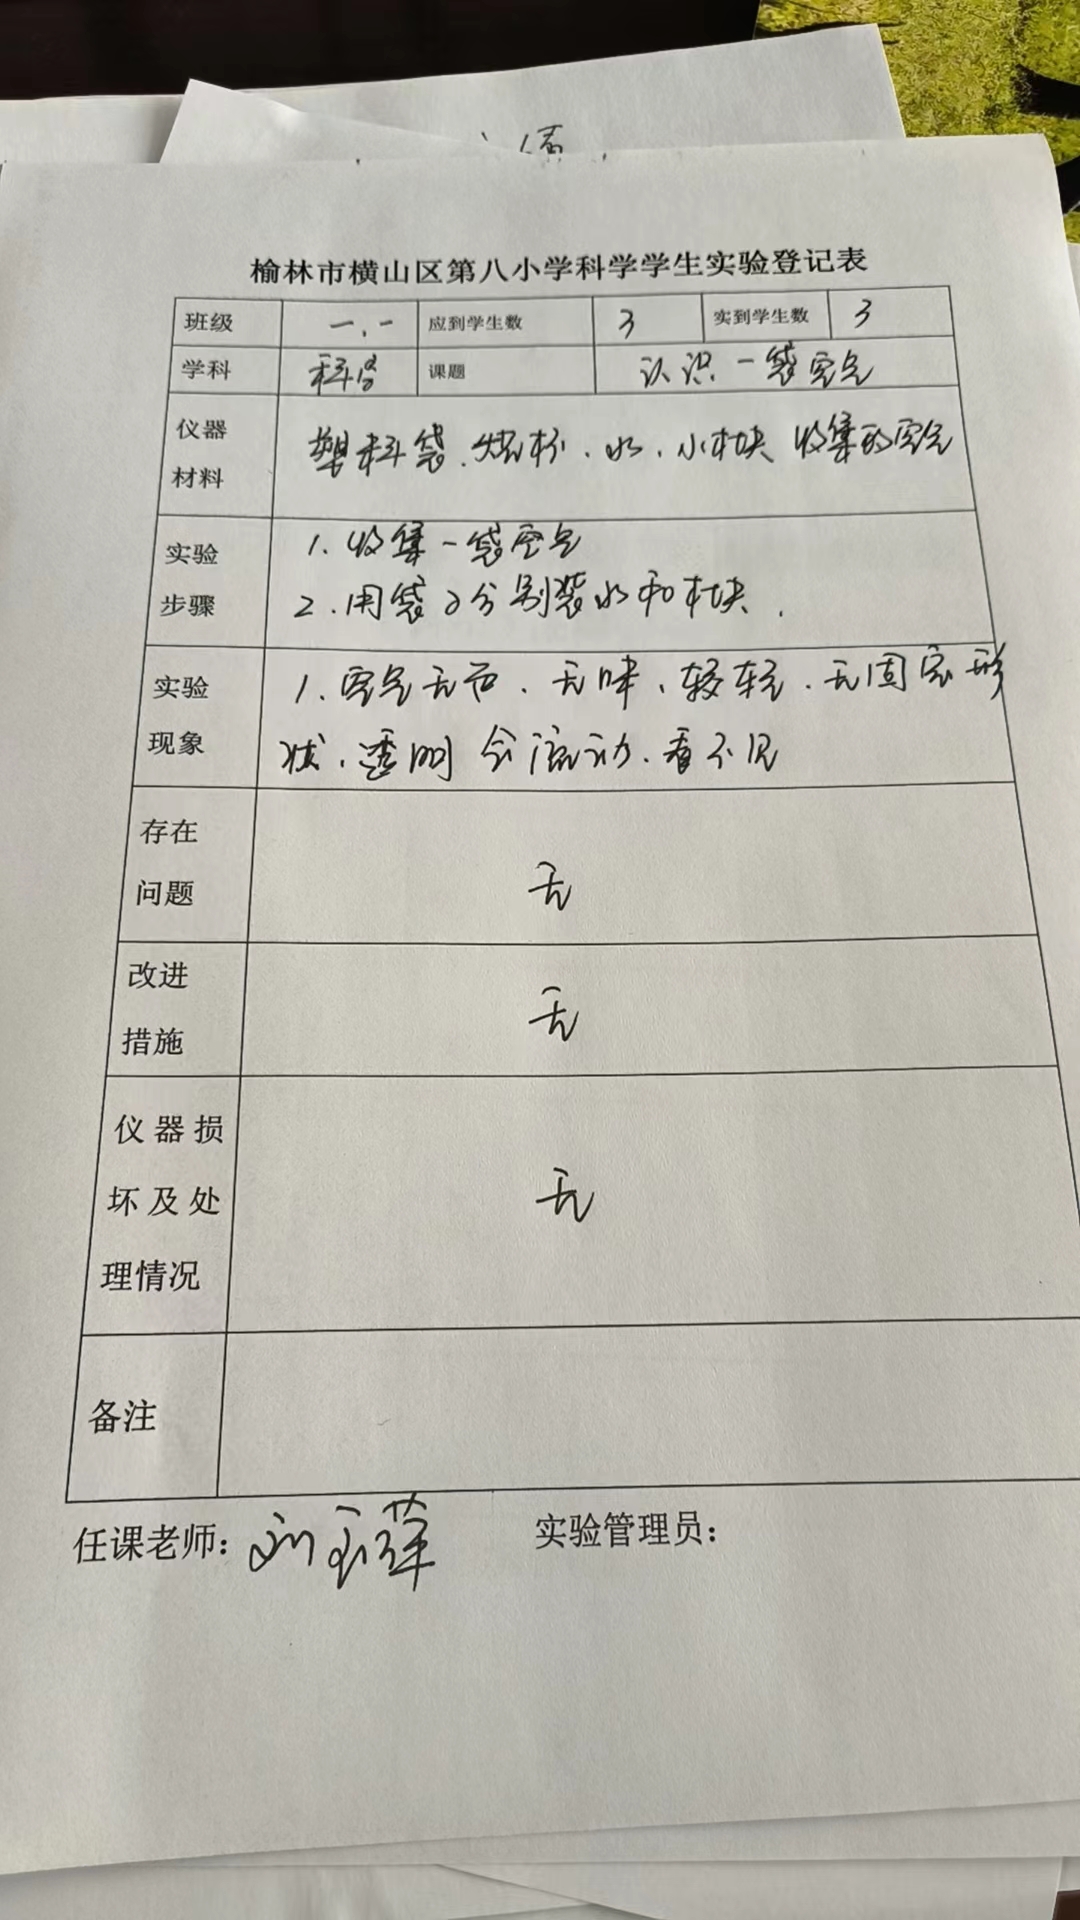 榆林市横山区第八小学科学学生实验登记表
班级 一.一 应到学生数 3 实到学生数 3
学科 科学 课题 认识一袋空气
仪器材料 塑料袋、烧杯、水、小木块 收集的空气
实验步骤 1. 收集一袋空气
2. 用袋子分别装水和木块.
实验现象 1. 空气无色、无味、较轻、无固定形
状、透明 会流动、看不见
存在问题 无
改进措施 无
仪器损坏及处理情况 无
备注
任课老师: 刘 实验管理员: